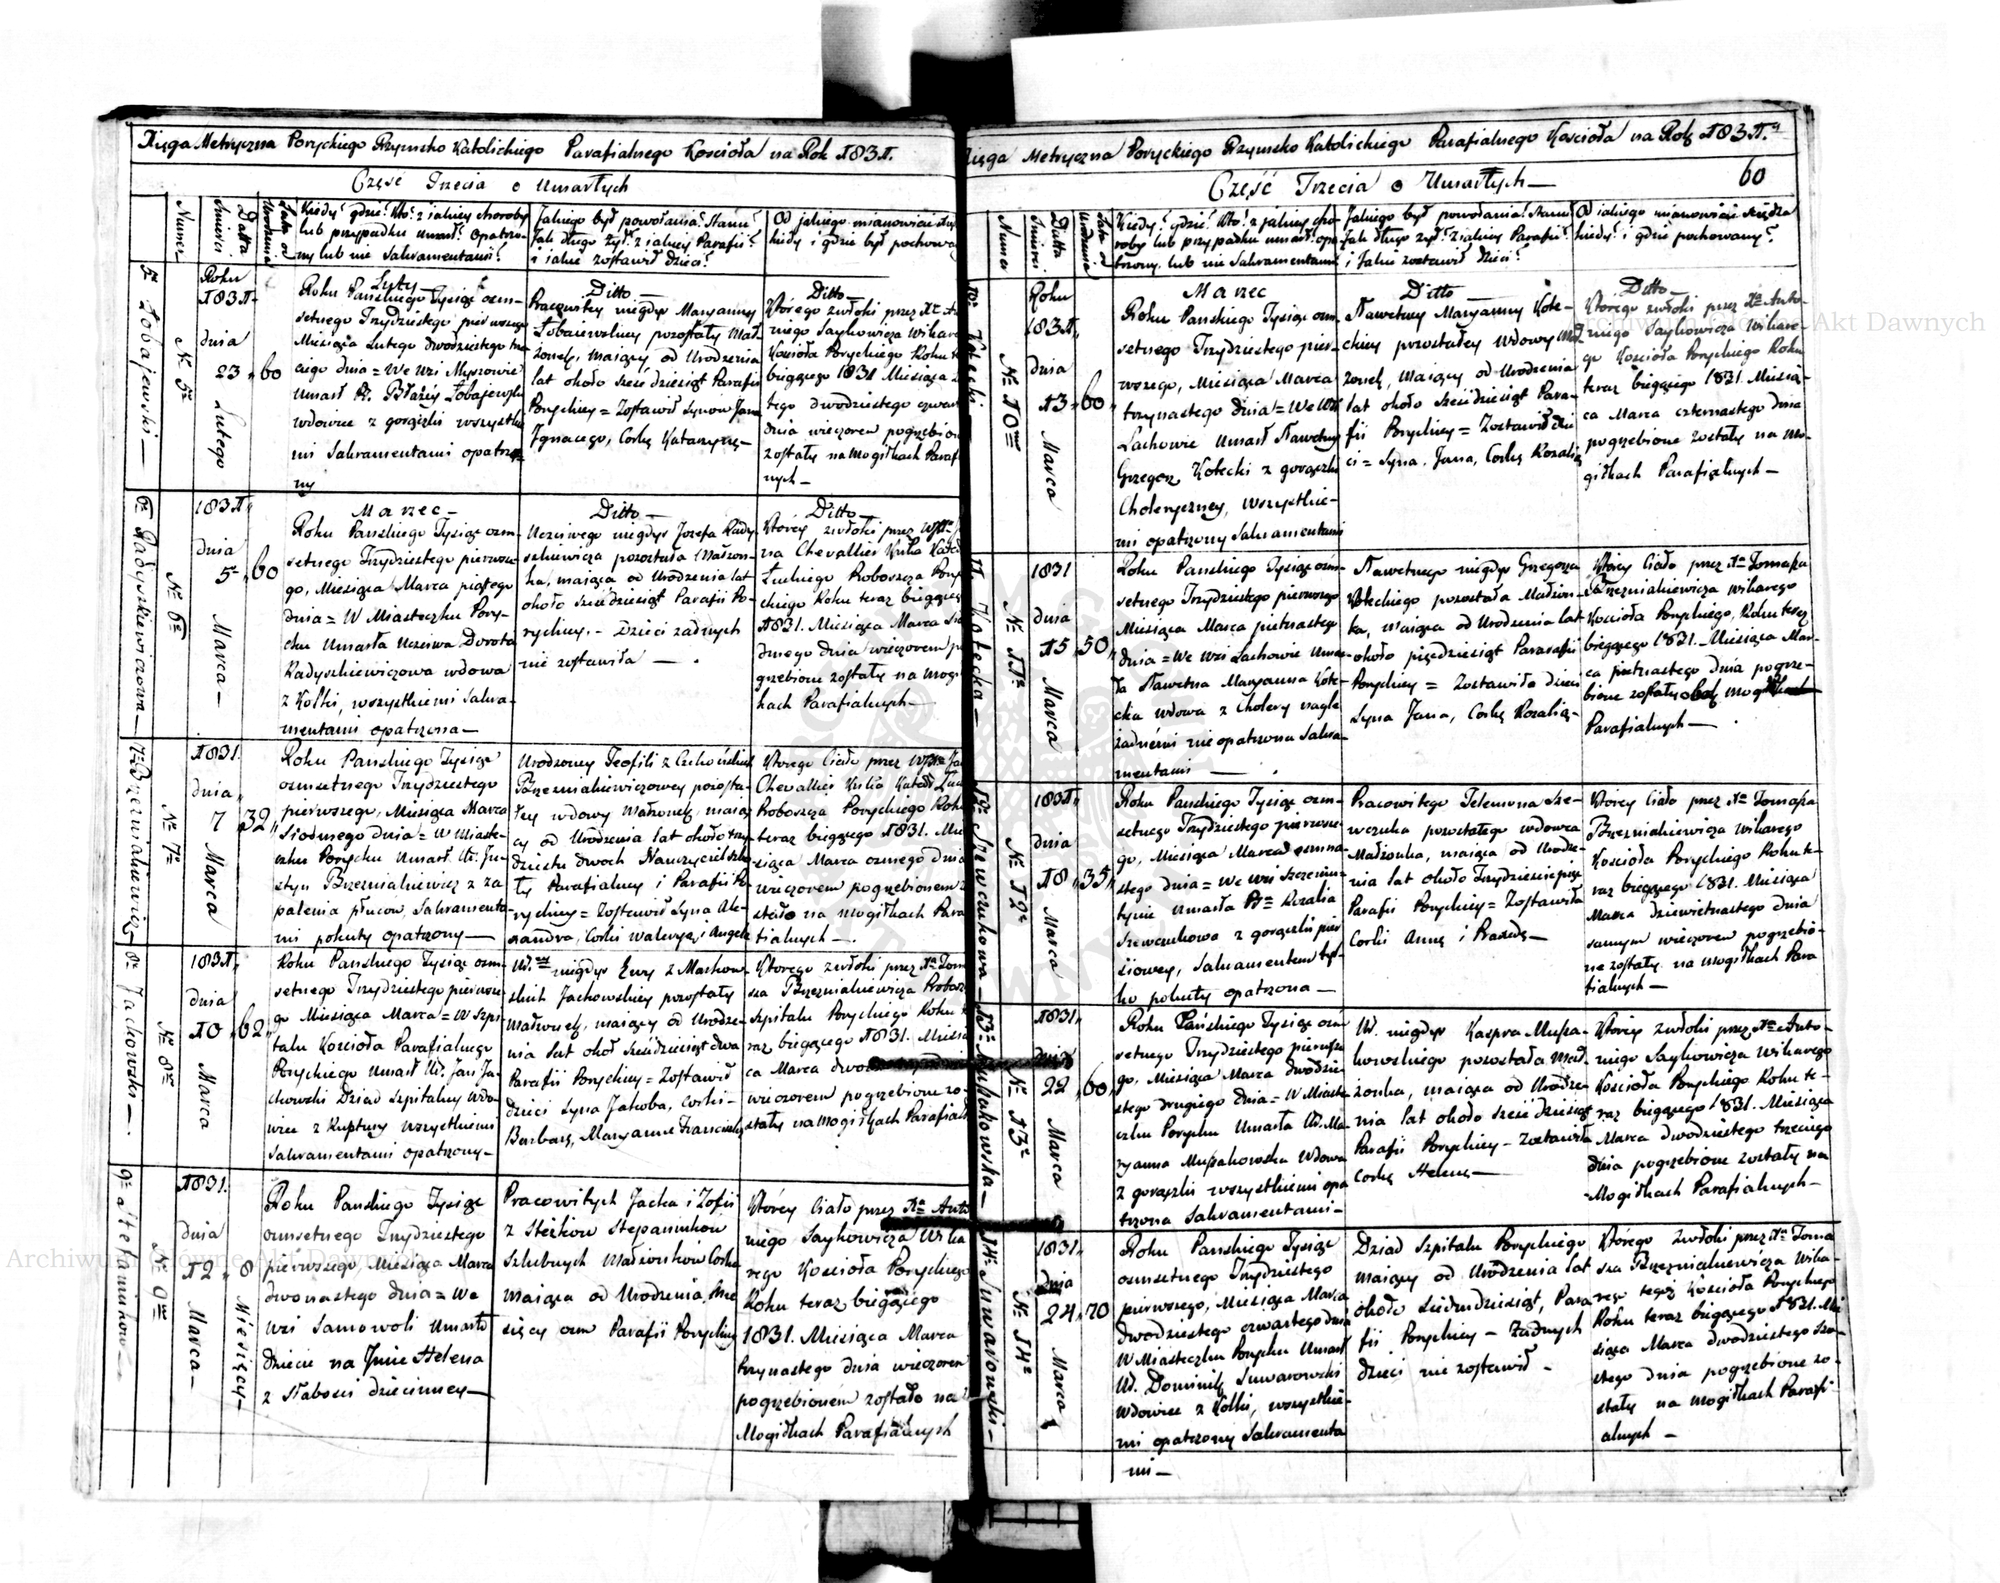 Xięga Metryczna Poryckiego Rzymsko Katolickiego Parafialnego Kościoła na Rok 1831.
Część Trzecia o Umarłych
Numer
Datta Śmierci
Lata od Urodzenia
Kiedy? gdzie? Kto? z jakiey choroby
lub przypadku umarł? Opatrzo-
ny lub nie Sakramentami?
Jakiego był powołania? Stanu?
Jak długo żył? z jakiey Parafii?
i jakie zostawił Dzieci?
Od jakiego mianowicie
kiedy i gdzie był pochowany
5. Łobajewski—
№ 5
Roku
1831
dnia
23
Lutego
60
Luty
Roku Pańskiego Tysiąc ośm-
setnego Trzydziestego pierwszego
Miesiąca Lutego dwudziestego trze-
ciego dnia = We Wsi Myszowie
umarł P. Błażey Łobajewski
wdowiec z gorączki wszystkie
mi Sakramentami opatrzo-
ny
Ditto—
Pracowitey niegdyś Maryanny
Łobaiewskiey pozostały Mał-
żonek, maiący od Urodzenia
lat około sześćdziesiąt Parafii
Poryckiey = Zostawił Synów Jana
Ignacego, Corkę Katarzynę—
Ditto—
Którego zwłoki przez X
niego Saykowicza Wikarego
Kościoła Poryckiego Roku
biegącego 1831 Miesiąca
tego dwudziestego czwartego
dnia wieczorem pogrzebione
zostały na Mogiłkach Parafial
nych—
6. Radyszkiewiczowa—
№ 6
1831
dnia
5
Marca—
60
Marzec—
Roku Pańskiego Tysiąc ośm-
setnego Trzydziestego pierwsze-
go, Miesiąca Marca piątego
dnia = W Miasteczku Pory-
cku Umarła Uczciwa Dorota
Radyszkiewiczowa wdowa
z Kolki, wszystkiemi Sakra-
mentami opatrzona—
Ditto—
Uczciwego niegdyś Jozefa Rady-
szkiewicza pozostała Małżon-
ka, maiąca od Urodzenia lat
około sześćdziesiąt Parafii Po-
ryckiey. - Dzieci żadnych
nie zostawiła—.
Ditto—
Którey zwłoki przez
na Chevallier Kniha
Łuckiego Proboszcza Pory
ckiego Roku teraz biegącego
1831. Miesiąca Marca
dmego dnia wieczorem po
grzebione zostały na Mogi
łkach Parafialnych—
7. Brzezniakiewicz—
№ 7
1831.
dnia
7
Marca
32
Roku Pańskiego Tysiąc
ośmsetnego Trzydziestego
pierwszego, Miesiąca Marca
siódmego dnia = W Miaste-
czku Porycku Umarł U. Ju-
styn Brzezniakiewicz z za
palenia płuców, Sakramenta-
mi pokuty opatrzony—
Urodzoney Teofili z
Brzezniakiewiczowey pozosta-
łey wdowy Małżonek, maiący
cy od Urodzenia lat około trzy-
dzieści dwóch Nauczyciel szko-
ły Parafialney i Parafii Po-
ryckiey = Zostawił Syna Ale-
xandra, Corki Waleryą i Angelę
Którego Ciało przez
Chevallier Kniha
Proboszcza Poryckiego Roku
teraz biegącego 1831. Mie
siąca Marca osmego dnia
wieczorem pogrzebionem zo
stało na Mogiłkach Para
fialnych—.
8. Jachowski—.
№ 8
1831
dnia
10
Marca
62
Roku Pańskiego Tysiąc ośm-
setnego Trzydziestego pierwsze
go Miesiąca Marca = W Szpi
talu Kościoła Parafialnego
Poryckiego Umarł U. Jan Ja-
chowski Dziad Szpitalny wdo-
wiec z Ruptury wszystkiemi
Sakramentami opatrzony—
U. niegdyś Ewy z Markow-
skich Jachowskiey pozostały
Małżonek, maiący od Urodze-
nia lat około Sześćdziesiąt dwa
Parafii Poryckiey = Zostawił
dzieci Syna Jakoba, Corki—
Barbarę, Maryannę Franciszkę
Ktorego zwłoki przez X Tom
sza Brzezniakiewicza
Szpitala Poryckiego Roku
raz biegącego 1831. Miesią
ca Marca
wieczorem pogrzebione zo
stały na Mogiłkach Parafial
9. Stefaniukow—
№ 9
1831.
dnia
12
Marca—
8
Miesięcy—
Roku Pańskiego Tysiąc
ośmsetnego Trzydziestego
pierwszego, Miesiąca Marca
dwónastego dnia = We
wsi Samowoli umarło
dziecie na Jmie Helena
z Słabosci dziecinney—
Pracowitych Jacka i Zofii
z Steżków Stefaniuków
szlubnych Małżonków Corka
maiąca od Urodzenia, Mie
sięcy ośm Parafii Poryckiey
Którey Ciało przez X Anto
niego Saykowicza Wika
rego Kościoła Poryckiego
Roku teraz biegącego
1831. Miesiąca Marca
trzynastego dnia wieczorem
pogrzebionem zostało na
Mogiłkach Parafialnych
Xięga Metryczna Poryckiego Rzymsko Katolickiego Parafialnego Kościoła na Rok 1831.
Część Trzecia o Umarłych—
60
Numer
Datta Śmierci
Lata od Urodzenia
Kiedy? gdzie? Kto? z jakiey cho-
roby lub przypadku umarł? opa-
trzony lub nie Sakramentami
Jakiego był powołania? Stanu?
Jak długo żył? z jakiey Parafii?
i Jakie zostawił Dzieci?
Od jakiego mianowicie Xiędza
kiedy? i gdzie pochowany?
10. Kotecki
№ 10
Roku
1831
dnia
13
Marca
60
Marzec
Roku Pańskiego Tysiąc ośm-
setnego Trzydziestego pier-
wszego, Miesiąca Marca
trzynastego dnia = We Wsi
Lachowie umarł Sławetny
Grzegorz Kotecki z gorączki
Choleryczney, wszystkie-
mi opatrzony Sakramentami
Ditto—
Sławetney Maryanny Kote-
ckiey pozostałey wdowy Mał
żonek, maiący od Urodzenia
lat około Sześćdziesiąt Para-
fii Poryckiey = Zostawił dzie
ci = Syna, Jana, Corkę Rozalią
Ditto—
Ktorego zwłoki przez X Anto-
niego Saykowicza Wikare-
go Kościoła Poryckiego Roku
teraz biegącego 1831. Miesią-
ca Marca czternastego dnia
pogrzebione zostały na Mo-
giłkach Parafialnych—
11. Kotecka—
№ 11
1831
dnia
15
Marca
50
Roku Pańskiego Tysiąc ośm-
setnego Trzydziestego pierwszego
Miesiąca Marca pietnastego
dnia = We Wsi Lachowie Umar-
ła Sławetna Maryanna Kote-
cka wdowa z Cholery nagle
żadnemi nie opatrzona Sakra-
mentami—.
Sławetnego niegdyś Grzegorza
Koteckiego pozostała Małżon-
ka, maiąca od Urodzenia lat
około pięćdziesiąt Parafii
Poryckiey = Zostawiła dzieci
Syna Jana, Corkę Rozalią—
Którey Ciało przez X Tomasza
Brzezniakiewicza Wikarego
Kościoła Poryckiego, Roku teraz
biegącego 1831. Miesiąca Mar-
ca pietnastego dnia pogrze-
bione zostały
Parafialnych—.
12. Szewczukowa—
№ 12
1831
dnia
18
Marca
35
Roku Pańskiego Tysiąc ośm-
setnego Trzydziestego pierwsze-
go, Miesiąca Marca osmna-
stego dnia = We wsi Szczeniu-
tynie umarła P. Rozalia
Szewczukowa z gorączki pier
siowey, Sakramentem tyl-
ko pokuty opatrzona—
Pracowitego Telemona Sze-
wczuka pozostałego wdowca
Małżonka, maiąca od Urodze-
nia lat około Trzydzieście pięć
Parafii Poryckiey = Zostawiła
Corki Annę i Praxedę—
Którey Ciało przez X Tomasza
Brzezniakiewicza Wikarego
Kościoła Poryckiego Roku te-
raz biegącego 1831. Miesiąca
Marca dziewietnastego dnia
samym wieczorem pogrzebio-
ne zostały na Mogiłkach Para
fialnych—
13. Muszakowska—
№ 13
1831
dnia
22
Marca
60
Roku Pańskiego Tysiąc ośm
setnego Trzydziestego pierwsze
go, Miesiąca Marca dwódzie-
stego drugiego dnia = W Miaste
czku Porycku Umarła U. Ma-
ryanna Muszakowska Wdowa
z gorączki wszystkiemi opa
trzona Sakramentami—
U. niegdyś Kaspra Musza-
kowskiego pozostała Mał-
żonka, maiąca od Urodze-
nia lat około sześćdziesiąt
Parafii Poryckiey - Zostawiła
Corkę Helenę—
Którey zwłoki przez X Anto-
niego Saykowicza Wikarego
Kościoła Poryckiego Roku te-
raz biegącego 1831. Miesiąca
Marca dwódziestego trzeciego
dnia pogrzebione zostały na
Mogiłkach Parafialnych—
14. Suwarowski—
№ 14
1831
dnia
24
Marca
70
Roku Pańskiego Tysiąc
ośmsetnego Trzydziestego
pierwszego, Miesiąca Marca
dwódziestego czwartego dnia
W Miasteczku Porycku Umarł
U. Dominik Suwarowski
Wdowiec z Kolki, wszystkie-
mi opatrzony Sakramenta
mi—
Dziad Szpitalu Poryckiego
maiący od Urodzenia lat
około Siedmdziesiąt, Para
fii Poryckiey - Żadnych
dzieci nie zostawił—
Którego Zwłoki przez X Toma
sza Brzezniakiewicza Wika-
rego tegoż Kościoła Poryckiego
Roku teraz biegącego 1831. Mie
siąca Marca dwódziestego szó-
stego dnia pogrzebione zo-
stały na Mogiłkach Parafi
alnych—
Archiwum Główne Akt Dawnych
Archiwum Główne Akt Dawnych